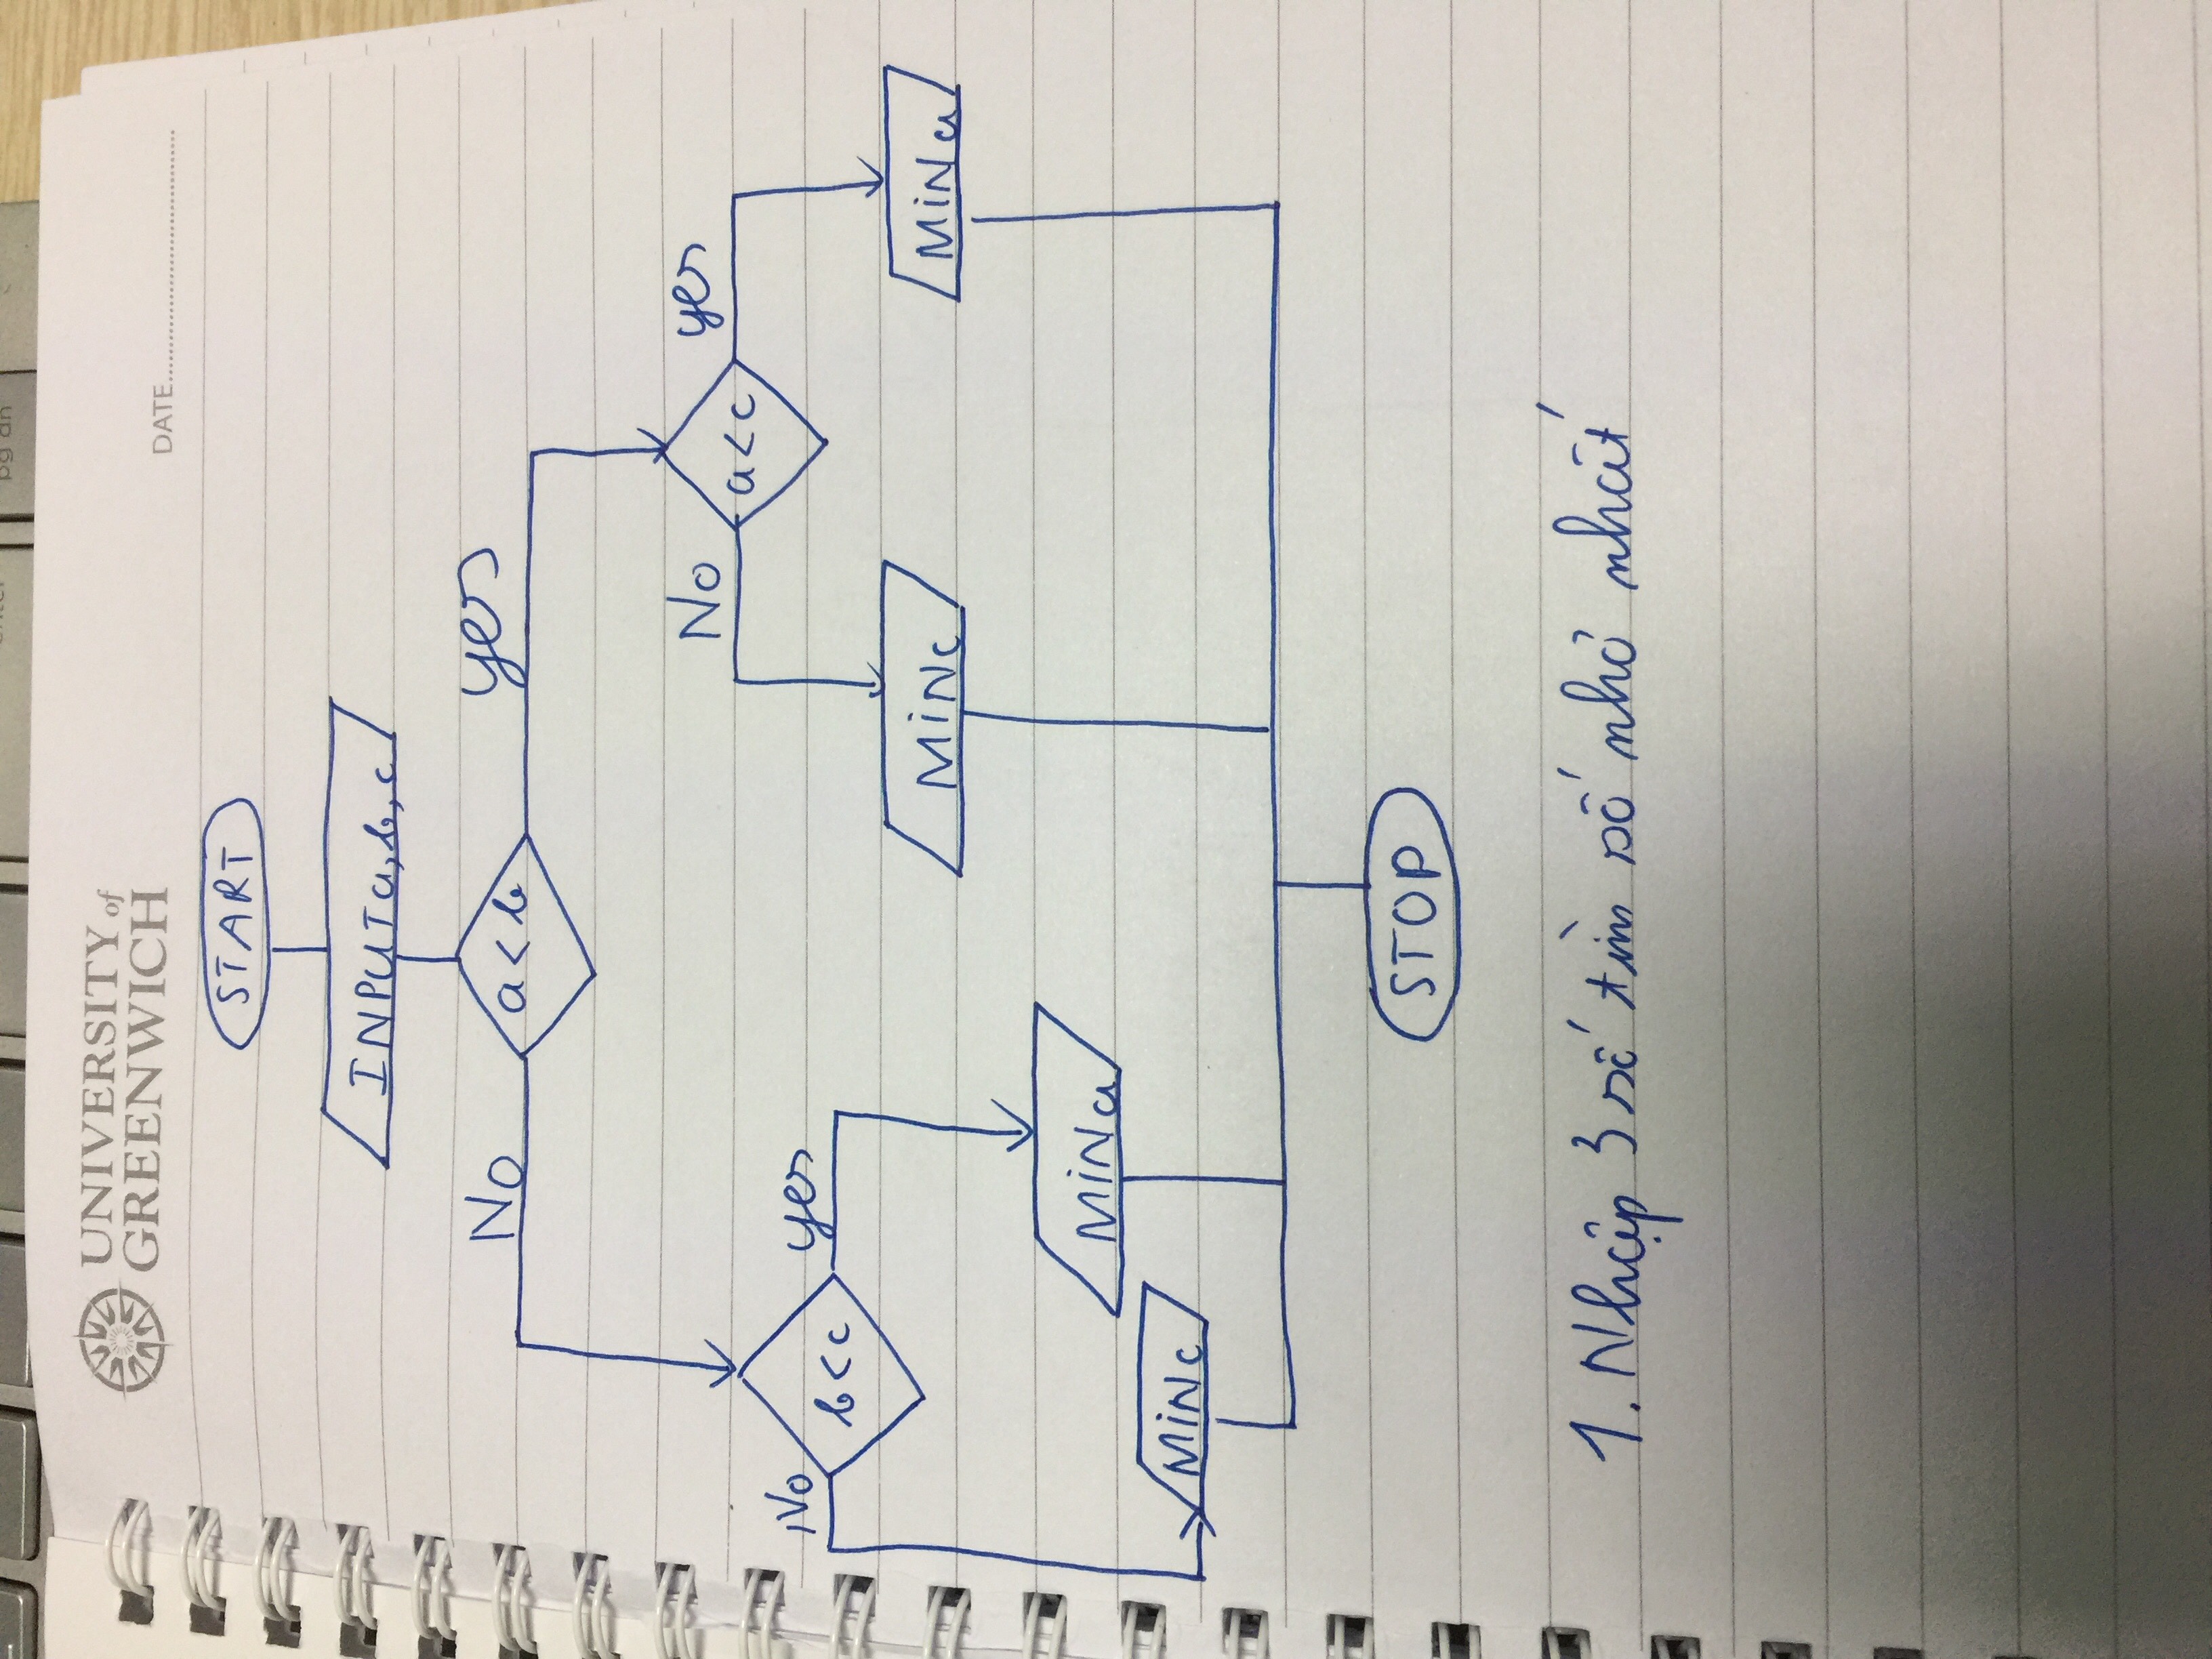 enter
pg dn
UNIVERSITY of
GREENWICH
DATE
START
INPUT a, b, c
No
a < b
yes
No
a < c
yes
No
b < c
yes
MiN c
MiN a
MiN a
MiN c
STOP
1. Nhập 3 số tìm số nhỏ nhất